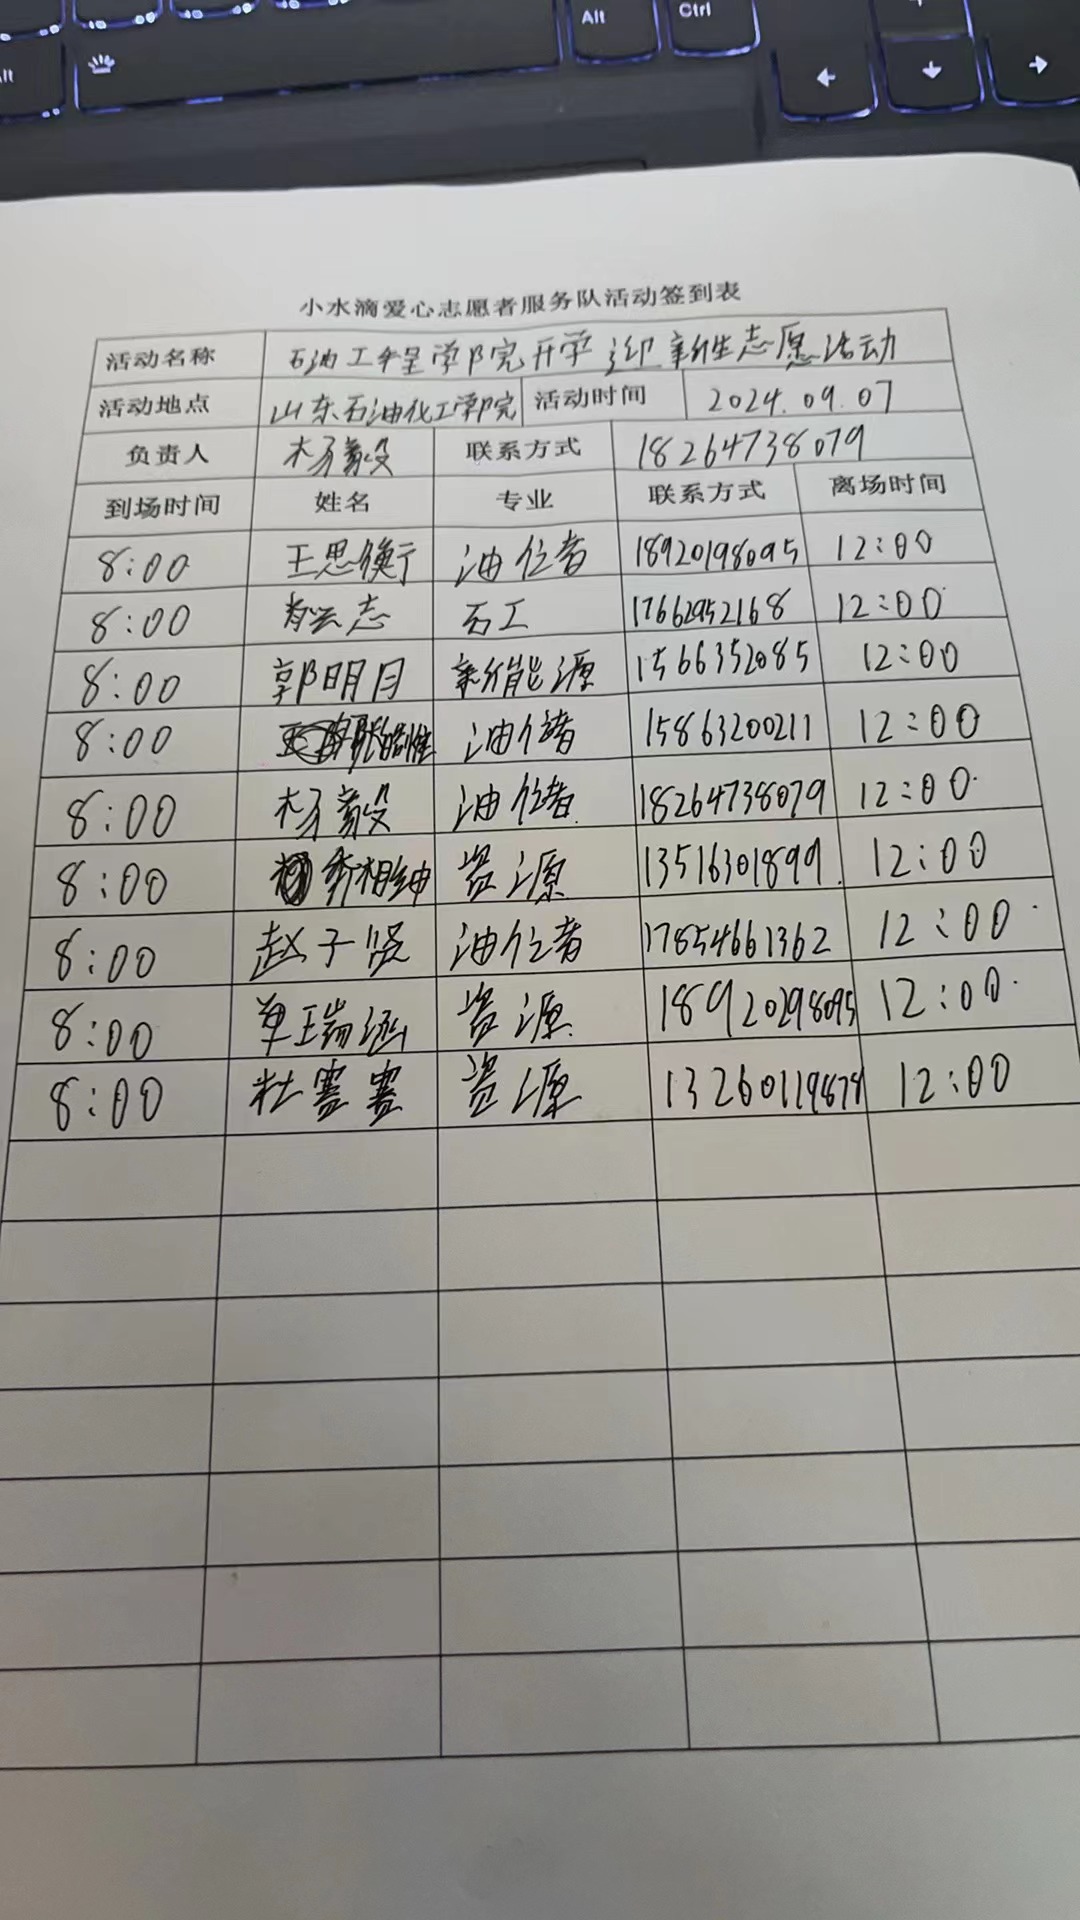 Alt
Ctrl
小水滴爱心志愿者服务队活动签到表
活动名称 石油工程学院开学迎新生志愿活动
活动地点 山东石油化工学院 活动时间 2024.09.07
负责人 杨毅 联系方式 18264738079
到场时间 姓名 专业 联系方式 离场时间
8:00 王思衡 油储 18920198095 12:00
8:00 志 石工 17662952168 12:00
8:00 郭明月 新能源 1566352085 12:00
8:00 油储 15863200211 12:00
8:00 杨毅 油储 18264738079 12:00
8:00 资源 13516301899 12:00
8:00 赵子贤 油储 17854661362 12:00
8:00 单瑞涵 资源 18920298095 12:00
8:00 杜雲雲 资源 13260119878 12:00